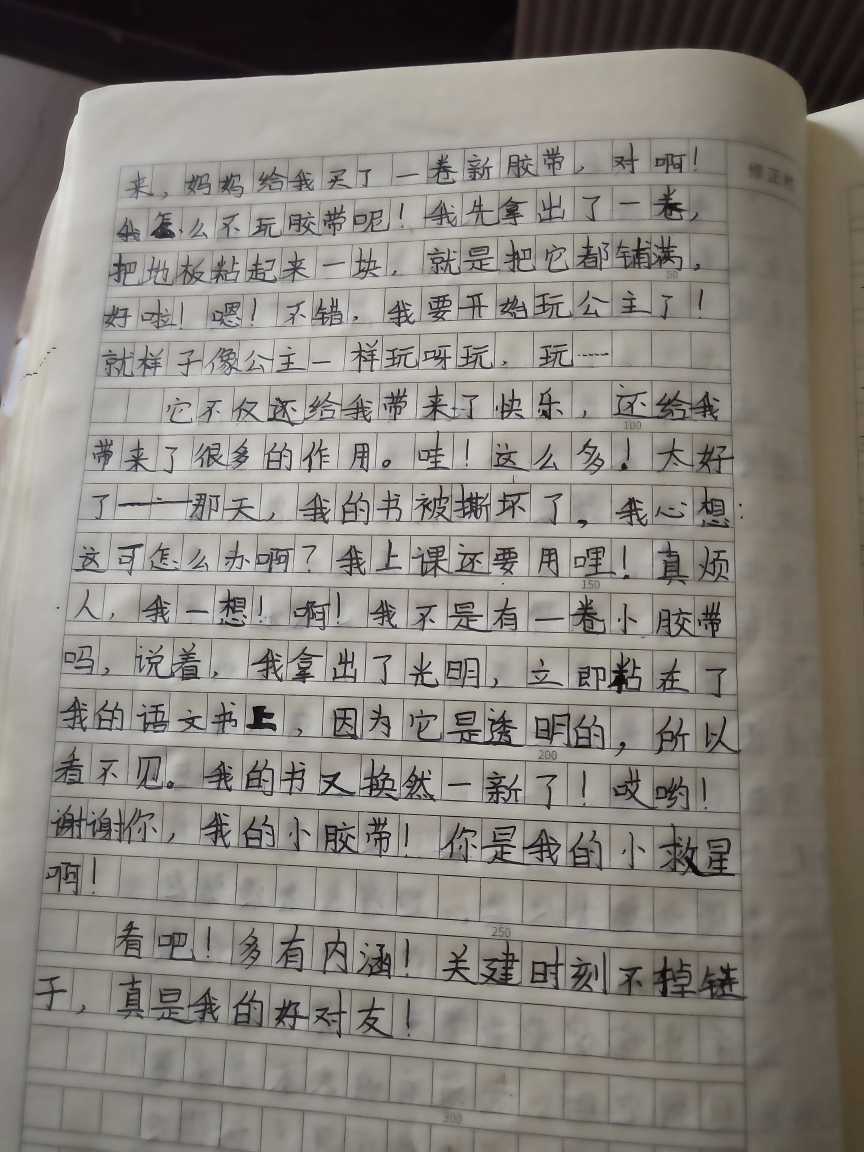 来，妈妈给我买了一卷新胶带，对啊！
我怎么不玩胶带呢！我先拿出了一卷，
把地板粘起来一块，就是把它都铺满，
50
好啦！嗯！不错，我要开始玩公主了！
就样子像公主一样玩呀玩，玩……
它不仅还给我带来了快乐，还给我
100
带来了很多的作用。哇！这么多！太好
了——那天，我的书被撕坏了，我心想：
这可怎么办啊？我上课还要用哩！真烦
150
人，我一想！啊！我不是有一卷小胶带
吗，说着，我拿出了光明，立即粘在了
我的语文书上，因为它是透明的，所以
200
看不见。我的书又换然一新了！哎哟！
谢谢你，我的小胶带！你是我的小救星
啊！
250
看吧！多有内涵！关建时刻不掉链
子，真是我的好对友！
300